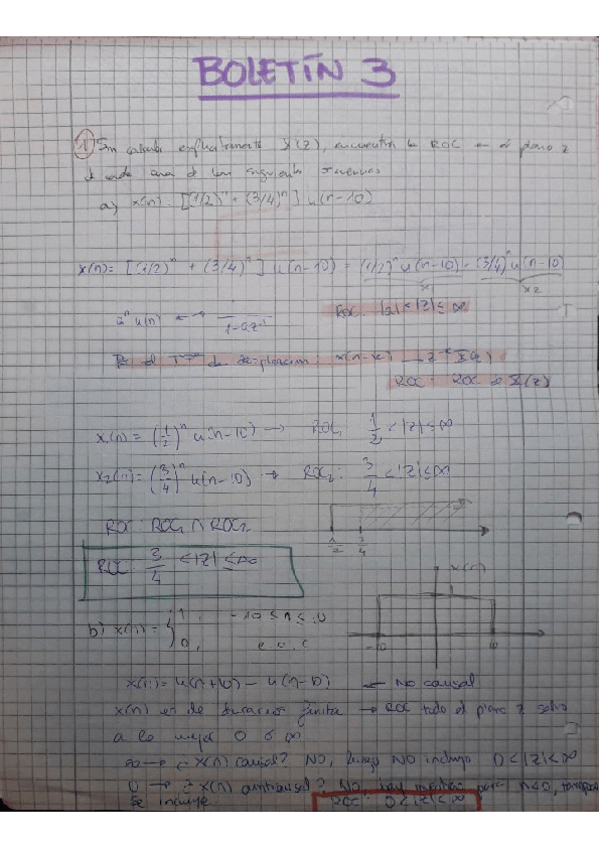 BOLETÍN 3
1) Sin calcular explícitamente X(z), encuentra la ROC en el plano z
de cada una de las siguientes
a) x(n) = [(1/2)^n + (3/4)^n] u(n-10)
x(n) = [(1/2)^n + (3/4)^n] u(n-10) = (1/2)^n u(n-10) - (3/4)^n u(n-10)
x2
a^n u(n) ROC: |a|<|z|≤∞
de x(n-k)
ROC: ROC de X(z)
x(n) = (1/2)^n u(n-10) → ROC 1/2 <|z|≤∞
x2(n) = (3/4)^n u(n-10) → ROC2: 3/4 <|z|≤∞
ROC: ROC1 ∩ ROC2
1/2 3/4
ROC: 3/4 <|z| ≤∞
x(n)
1
b) x(n) = { 1, -10 ≤ n ≤ 10
0, e.o.c
-10 10
x(n) = u(n+10) - u(n-10) ← No causal
x(n) es de duración finita → ROC todo el plano z salvo
a lo mejor 0 ó ∞
∞ → ¿ x(n) causal? NO, luego NO incluyo 0<|z|<∞
0 → ¿ x(n) anticausal? NO, hay muestras para n>0, tampoco
se incluye. ROC: 0<|z|<∞